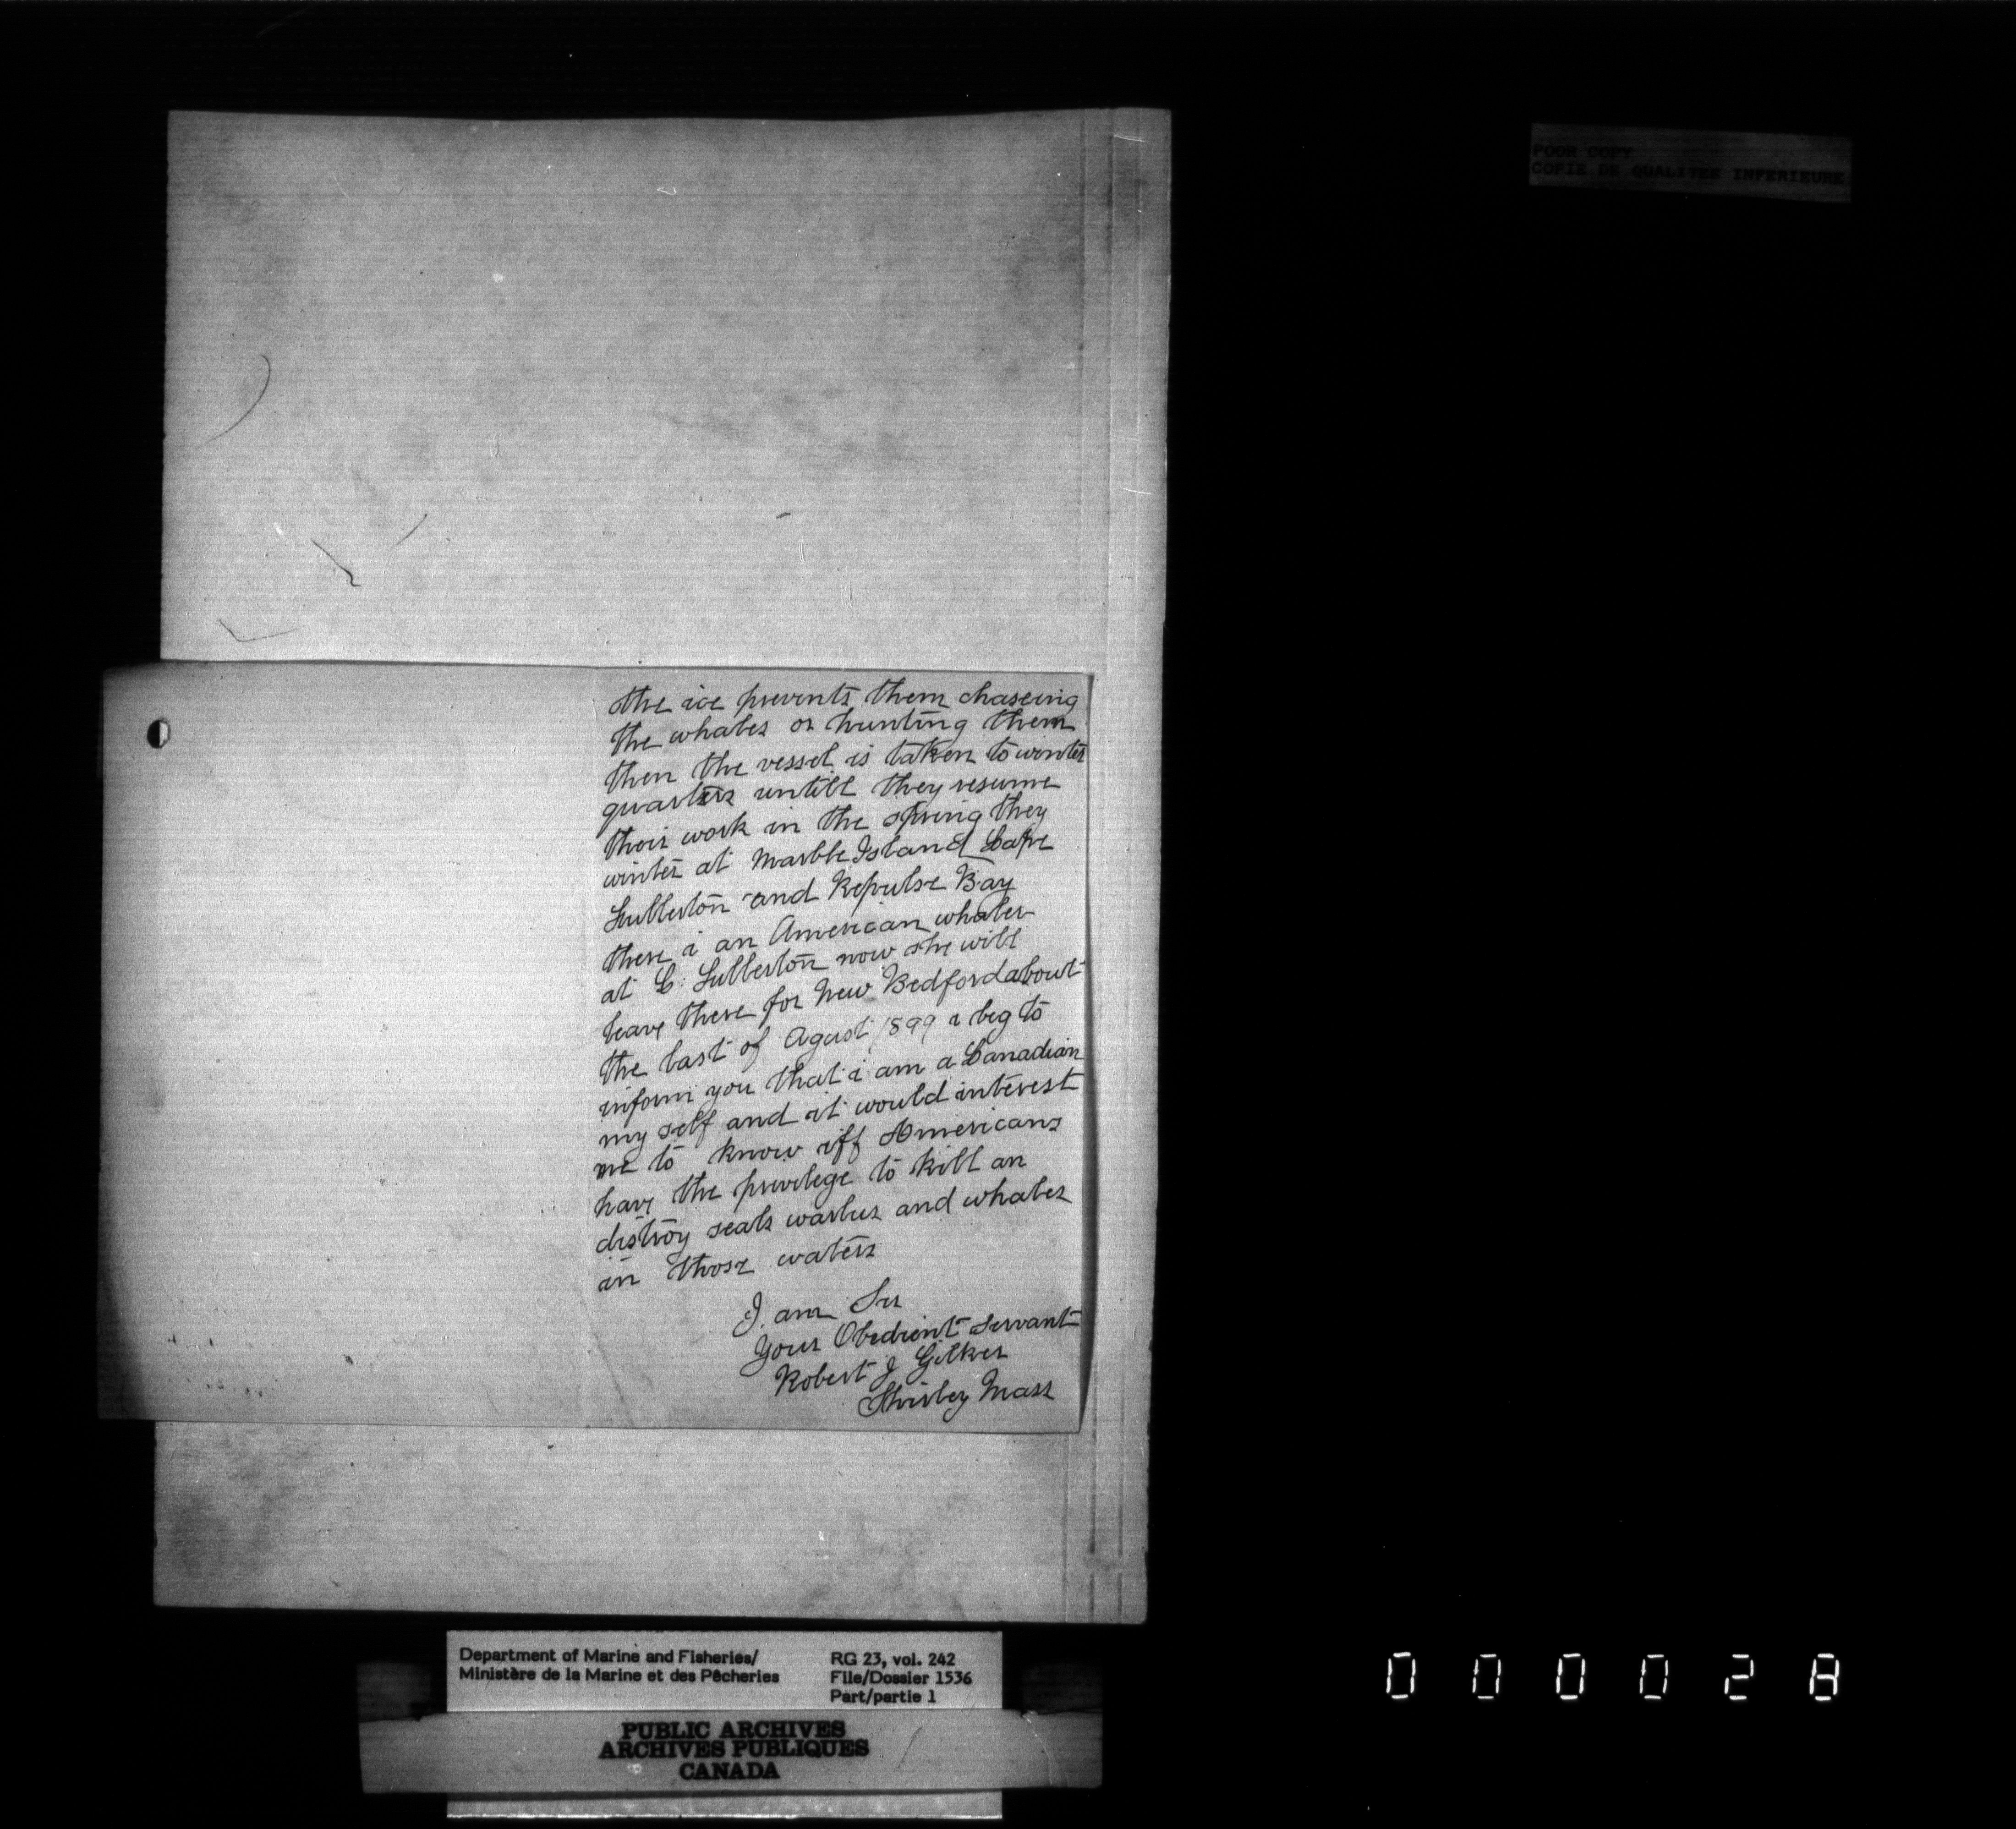 POOR COPY
COPIE DE QUALITEE INFERIEURE
the ice prevents them chaseing
the whales or hunting them
then the vessel is taken to winter
quarters untill they resume
their work in the spring they
winter at Marble Island Cape
Fullerton and Repulse Bay
there i an American whaler
at C. Fullerton now she will
leave there for New Bedford about
the last of Agust 1899 i beg to
inform you that i am a Canadian
my self and it would interest
me to know iff Americans
have the privilege to kill an
distroy seals warlus and whales
in those waters
I am Sir
Your Obedient servant
Robert J Gilker
Shirley Mass
Department of Marine and Fisheries/
Ministère de la Marine et des Pêcheries
RG 23, vol. 242
File/Dossier 1536
Part/partie 1
PUBLIC ARCHIVES
ARCHIVES PUBLIQUES
CANADA
000028